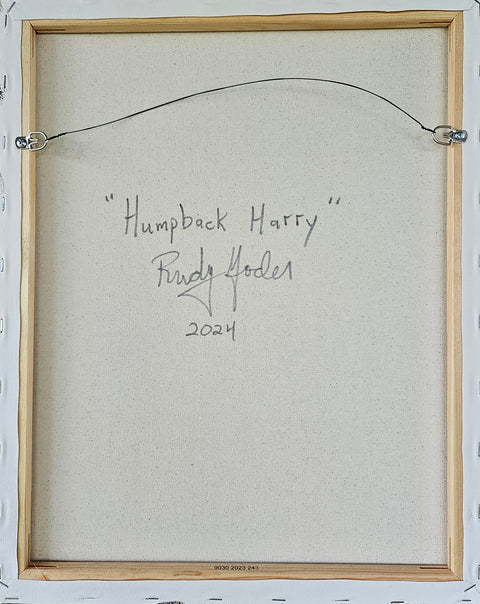 "Humpback Harry"
Rudy Yoder
2024
9030 2023 243